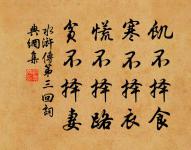 飢不择食
寒不择衣
慌不择路
貧不择妻
水浒傳第三回詞
典網集